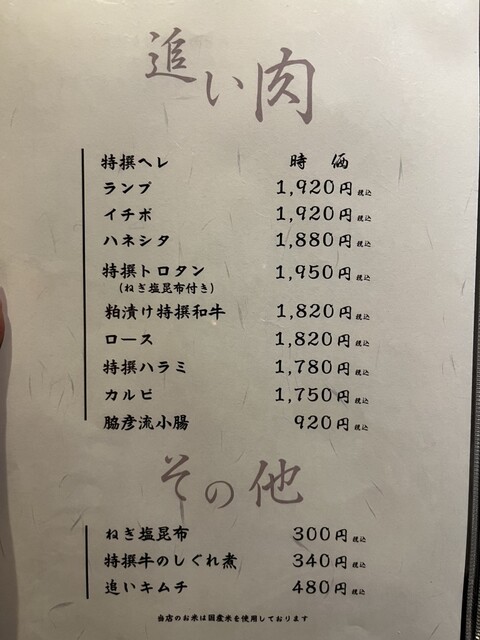 追い肉
特撰ヘレ 時価
ランプ 1,920円税込
イチボ 1,920円税込
ハネシタ 1,880円税込
特撰トロタン 1,950円税込
(ねぎ塩昆布付き)
粕漬け特撰和牛 1,820円税込
ロース 1,820円税込
特撰ハラミ 1,780円税込
カルビ 1,750円税込
脇彦流小腸 920円税込
その他
ねぎ塩昆布 300円税込
特撰牛のしぐれ煮 340円税込
追いキムチ 480円税込
当店のお米は国産米を使用しております